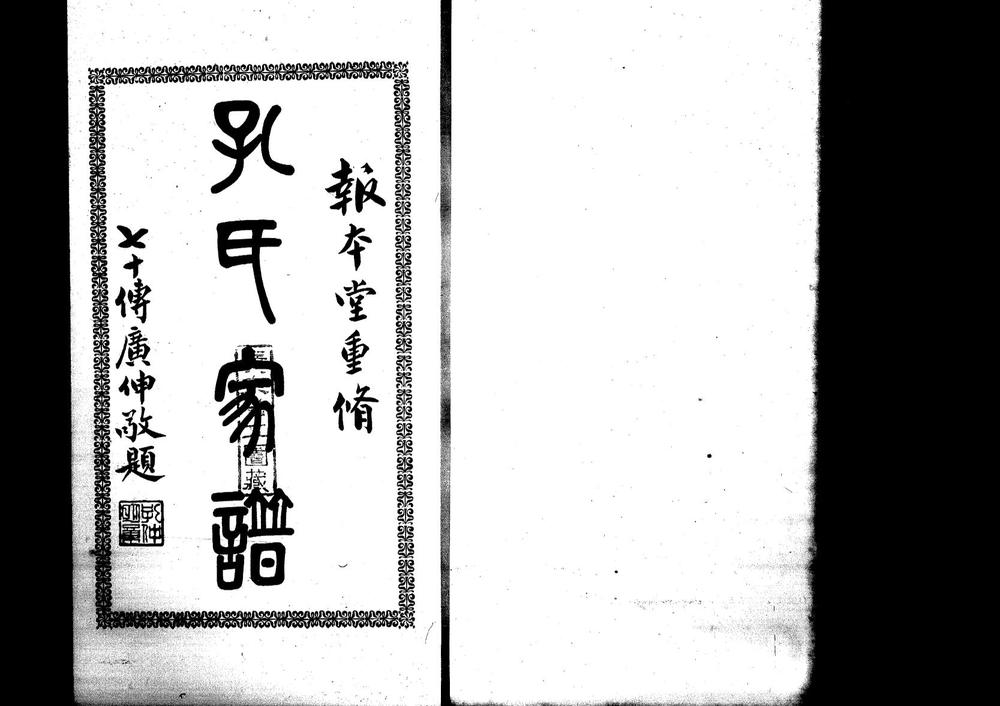 報本堂重脩
孔氏家譜
七十傳廣伸敬題